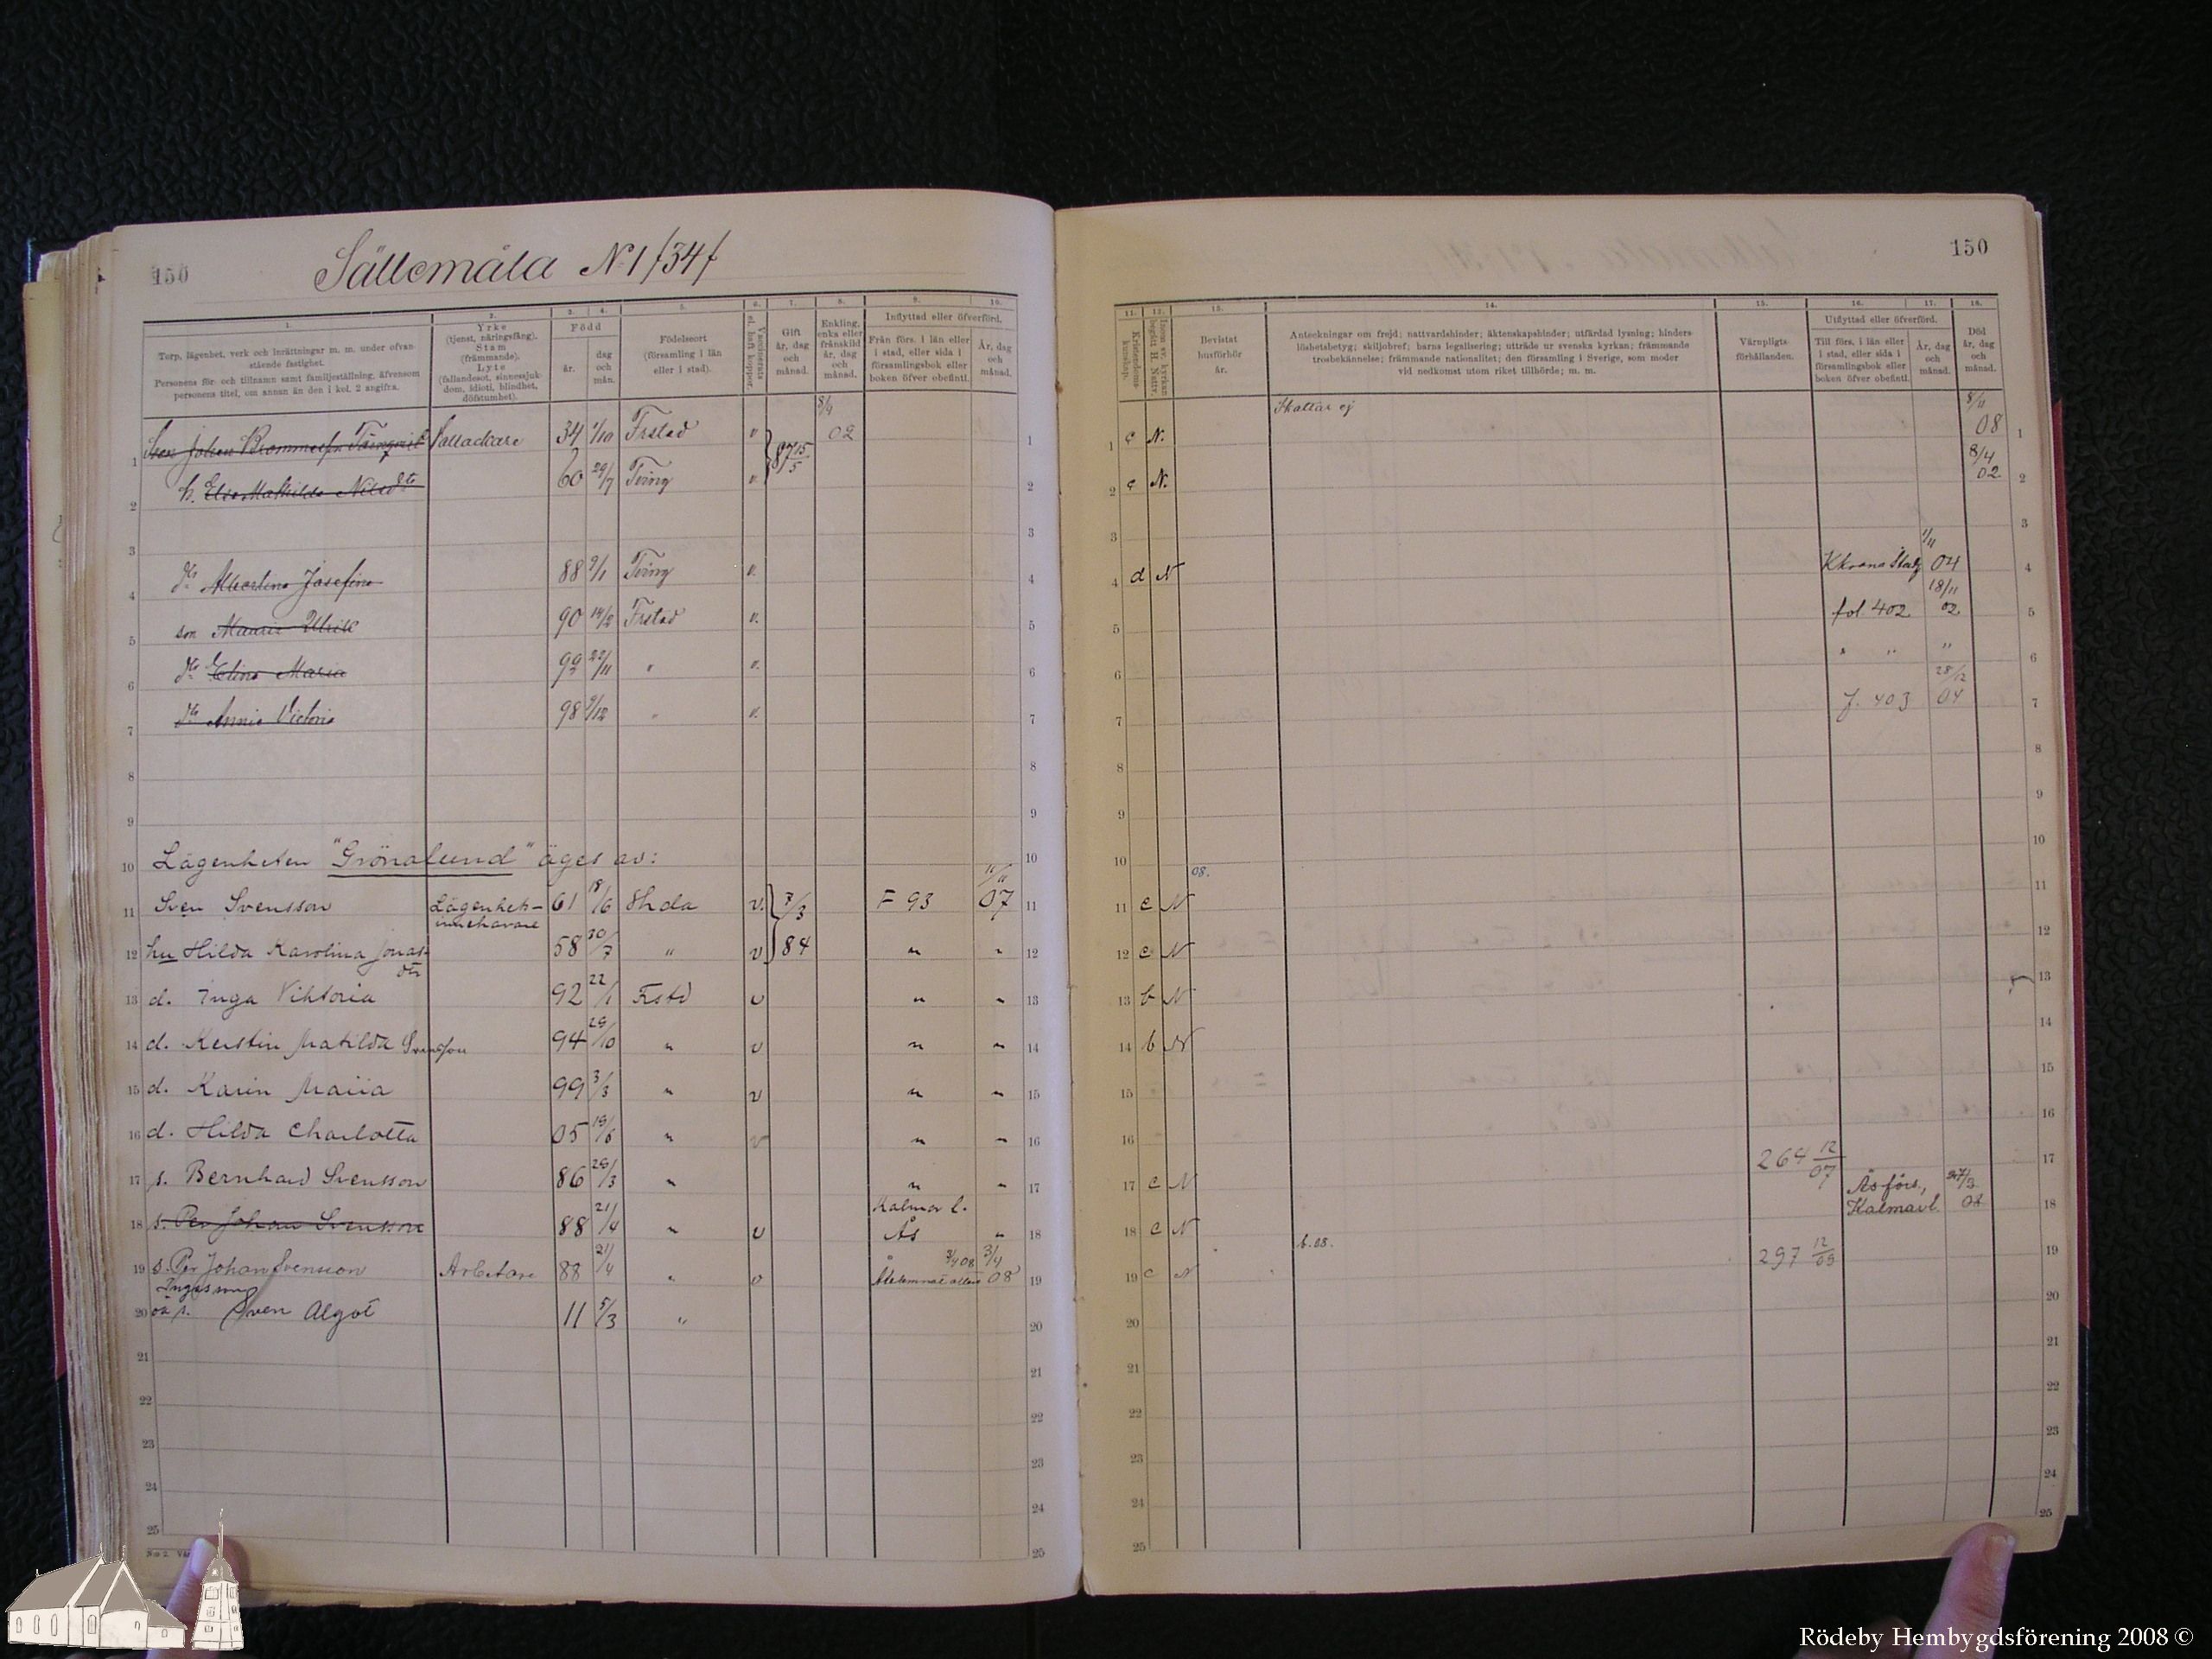 150
Sällemåla N 1 /34/
1.
2.
3.
4.
5.
6.
7.
8.
9.
10.
Torp, lägenhet, verk och inrättningar m. m. under ofvan-
stående fastighet.
Personens för- och tillnamn samt familjeställning, äfvensom
personens titel, om annan än den i kol. 2 angifra.
Yrke
(tjenst, näringsfång),
Stam
(främmande),
Lyte
(fallandesot, sinnessjuk-
dom, idioti, blindhet,
döfstumhet).
Född
år.
dag
och
mån.
Födelseort
(församling i län
eller i stad).
Vaccinerats
el. haft koppor.
Gift
år, dag
och
månad.
Enkling,
enka eller
frånskild
år, dag
och
månad.
Inflyttad eller öfverförd.
Från förs. i län eller
i stad, eller sida i
församlingsbok eller
boken öfver obefintl.
År, dag
och
månad.
1 Sven Johan 34 1/10 Frstad v 87 15/5 8/4 02 1
2 h. Elsa Mathilda Nilsdtr 60 29/7 Tving v. 2
3 3
4 dtr Albertina Josefina 88 9/1 Tving v. 4
5 son Maurits Ulrik 90 14/2 Frstad v. 5
6 dtr Elina Maria 22/11 " v. 6
7 dtr Annie Victoria 98 9/12 " v. 7
8 8
9 9
10 Lägenheten "Grönalund" äges av: 10
11 Sven Svensson Lägenhets- 61 18/6 v. 3/3 F 93 11/11 07 11
innehavare
12 hu Hilda Karolina Jonas- 58 30/7 " v 84 " " 12
dtr
13 d. Inga Viktoria 92 22/1 Frstd v " " 13
14 d. Kerstin Matilda Svensson 94 29/10 " v " " 14
15 d. Karin Maria 99 3/3 " v " " 15
16 d. Hilda Charlotta 05 19/6 " v " " 16
17 s. Bernhard Svensson 86 29/3 " " " 17
18 s. Per Johan Svensson 88 21/4 " v Kalmar l. Ås " 18
19 s. Per Johan Svensson Arbetare 88 21/4 " v 3/4 08 3/4 08 19
Ingas son
20 oä s. Sven Algot 11 5/3 " 20
21 21
22 22
23 23
24 24
25 25
150
11.
12.
13.
14.
15.
16.
17.
18.
Kristendoms-
kunskap.
Inom sv. kyrkan
begått H. Nattv.
Bevistat
husförhör
år.
Anteckningar om frejd; nattvardshinder; äktenskapshinder; utfärdad lysning; hinders-
löshetsbetyg; skiljobref; barns legalisering; utträde ur svenska kyrkan; främmande
trosbekännelse; främmande nationalitet; den församling i Sverige, som moder
vid nedkomst utom riket tillhörde; m. m.
Värnpligts-
förhållanden.
Utflyttad eller öfverförd.
Till förs. i län eller
i stad, eller sida i
församlingsbok eller
boken öfver obefintl.
År, dag
och
månad.
Död
år, dag
och
månad.
1 c N. Skattar ej 8/11 08 1
2 c N. 8/4 02 2
3 3
4 d N 1/11 04 4
5 fol 402 18/11 02 5
6 " " " 6
7 f. 403 28/12 04 7
8 8
9 9
10 08. 10
11 c N 11
12 c N 12
13 b N 13
14 b N 14
15 15
16 16
17 c N 264 12/07 17
18 c N Ås förs., Kalmar l. 27/3 08 18
19 c N b. 08. 297 12/09 19
20 20
21 21
22 22
23 23
24 24
25 25
Rödeby Hembygdsförening 2008 ©